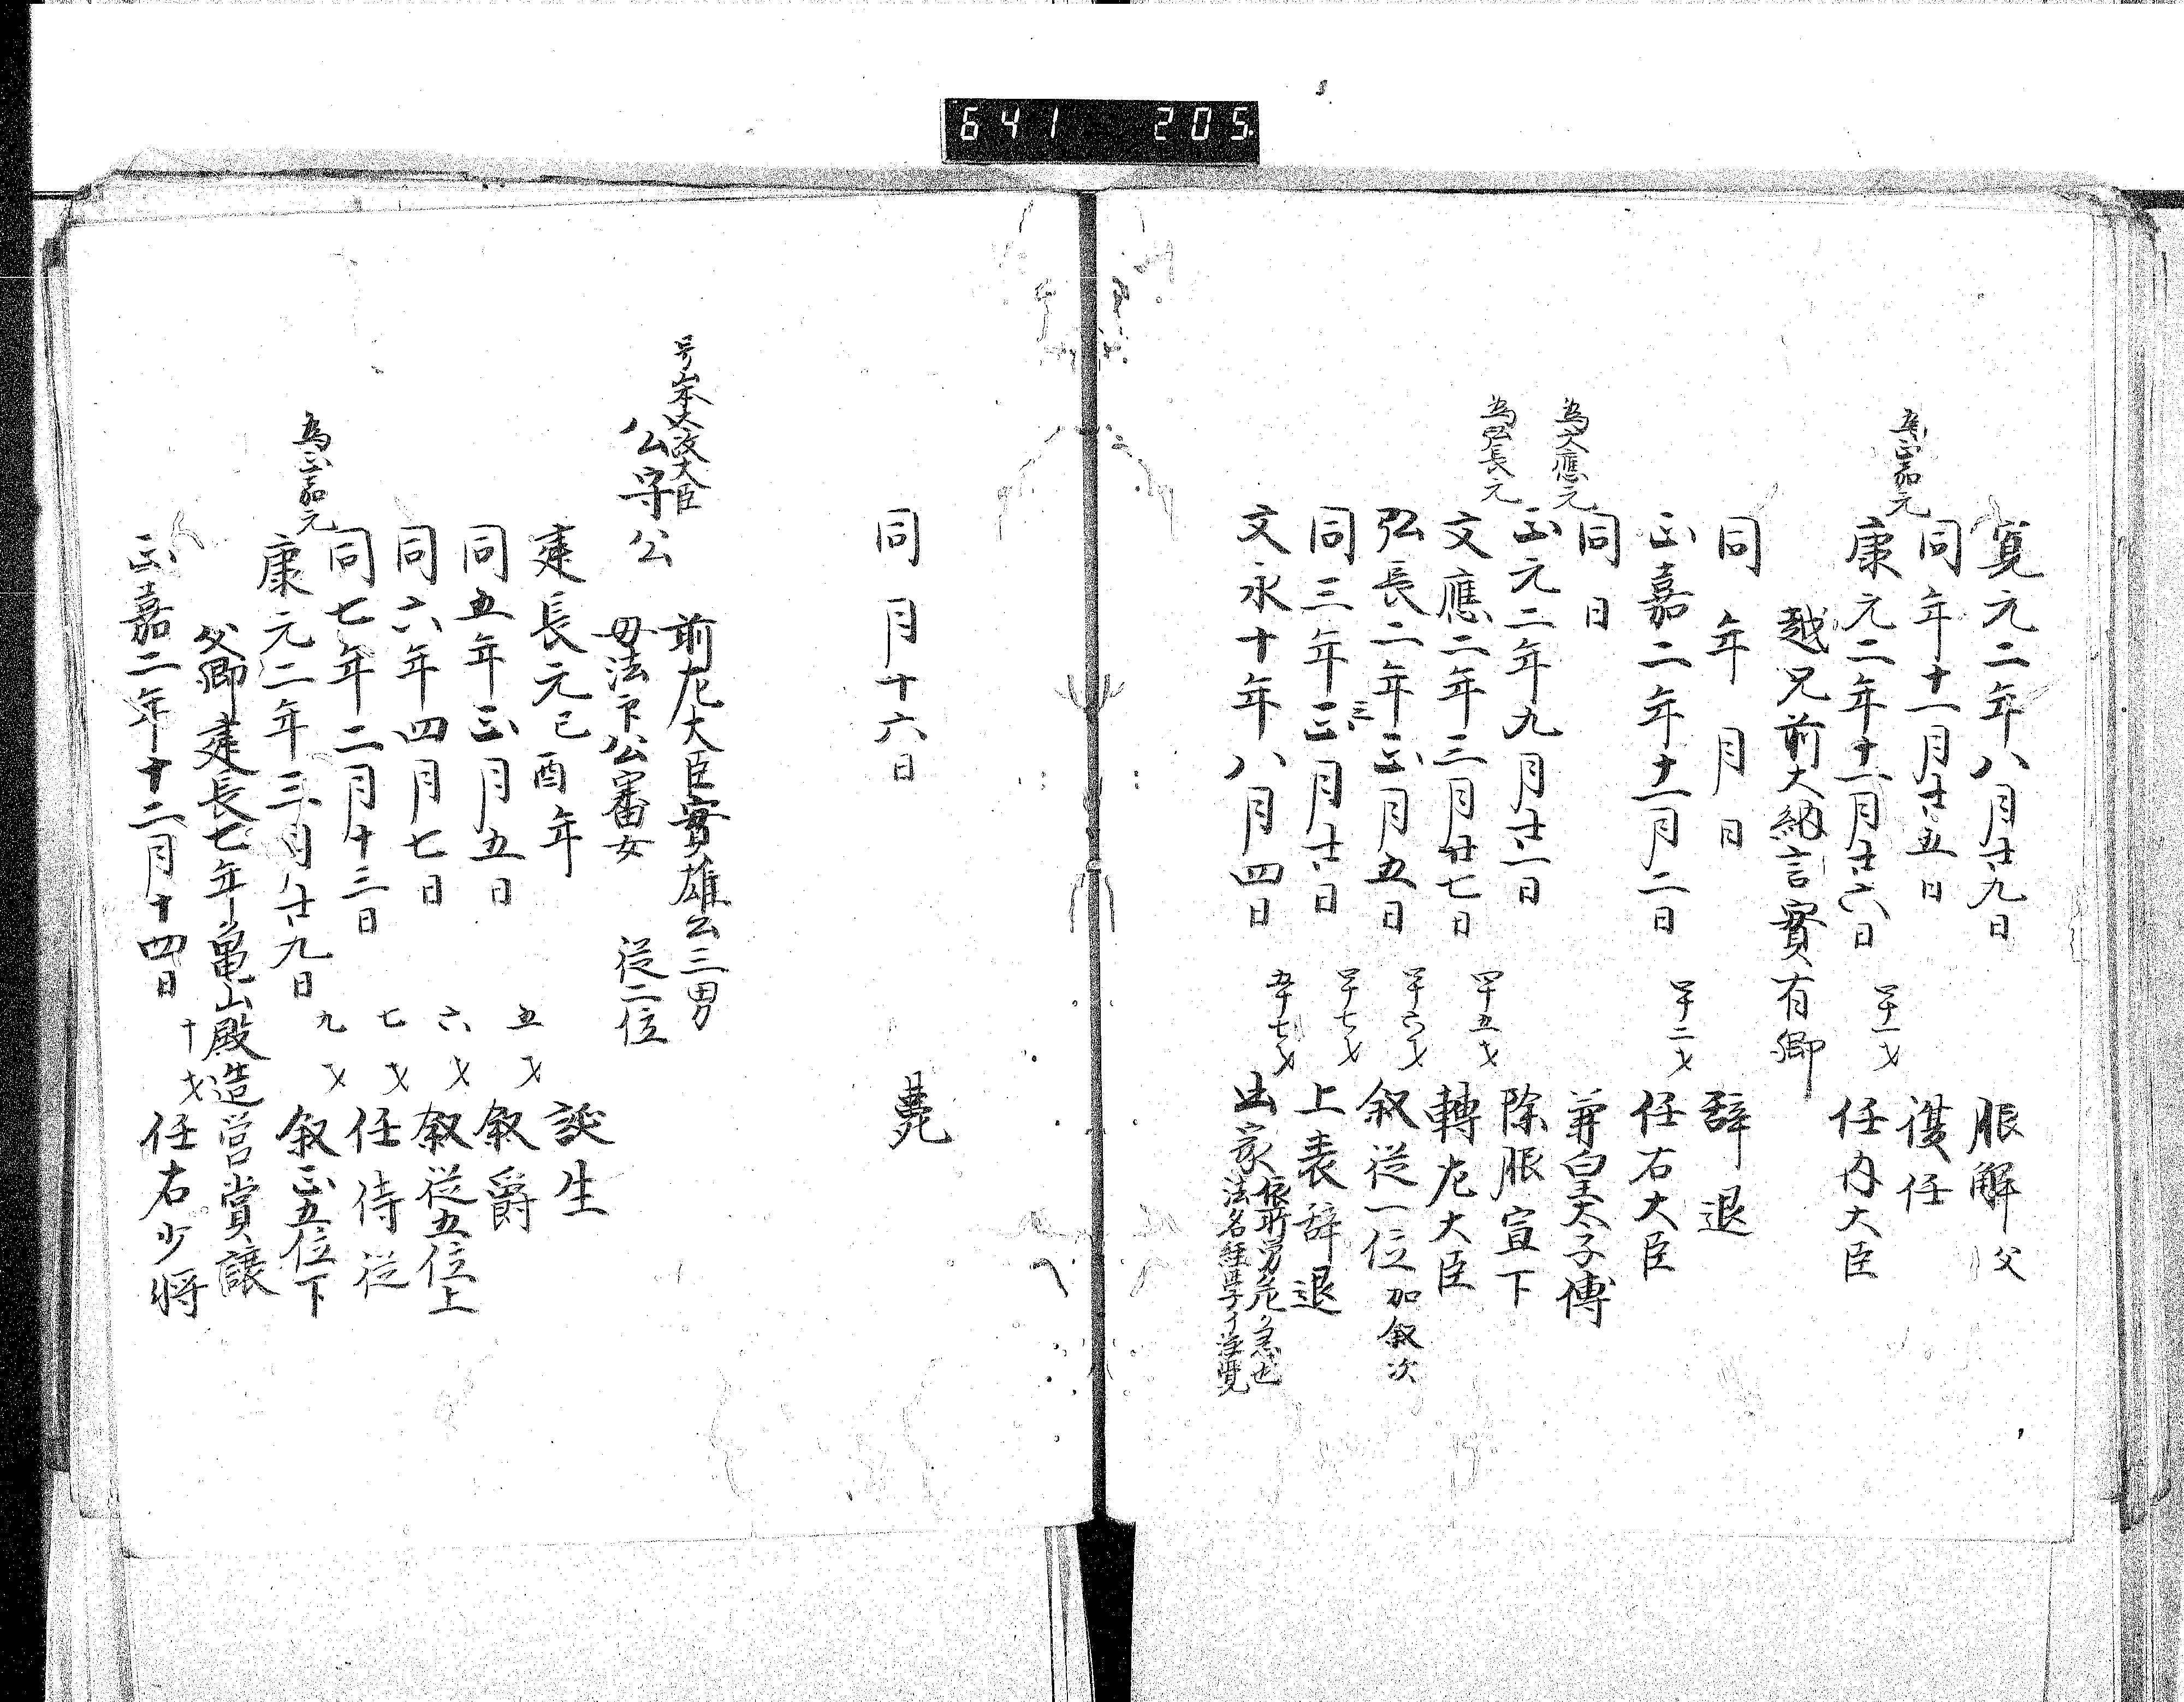 641 205
寛元二年八月廿九日 服解父
同年十一月廿五日 復任
為正嘉元
康元二年十一月廿六日 四十一才 任内大臣
越兄前大納言實有卿
同年 月 日 辞退
正嘉二年十一月二日 四十二才 任右大臣
同日 兼皇太子傅
為文應元
正元二年九月廿一日 除服宣下
為弘長元
文應二年三月廿七日 四十五才 轉左大臣
弘長二年正月五日 四十六才 叙従一位 加叙次
三
同三年三月廿日 四十七才 上表辞退
文永十年八月四日 五十七才 出家
依所労危急也
法名経学イ浄覚
同月十六日 薨
号山本太政大臣
公守公
前左大臣實雄公三男
母法下公審女 従二位
建長元己酉年 誕生
同五年正月五日 五才 叙爵
同六年四月七日 六才 叙従五位上
同七年二月十三日 七才 任侍従
為正嘉元
康元二年三月廿九日 九才 叙正五位下
父卿建長七年亀山殿造営賞譲
正嘉二年十二月十四日 十才 任右少将